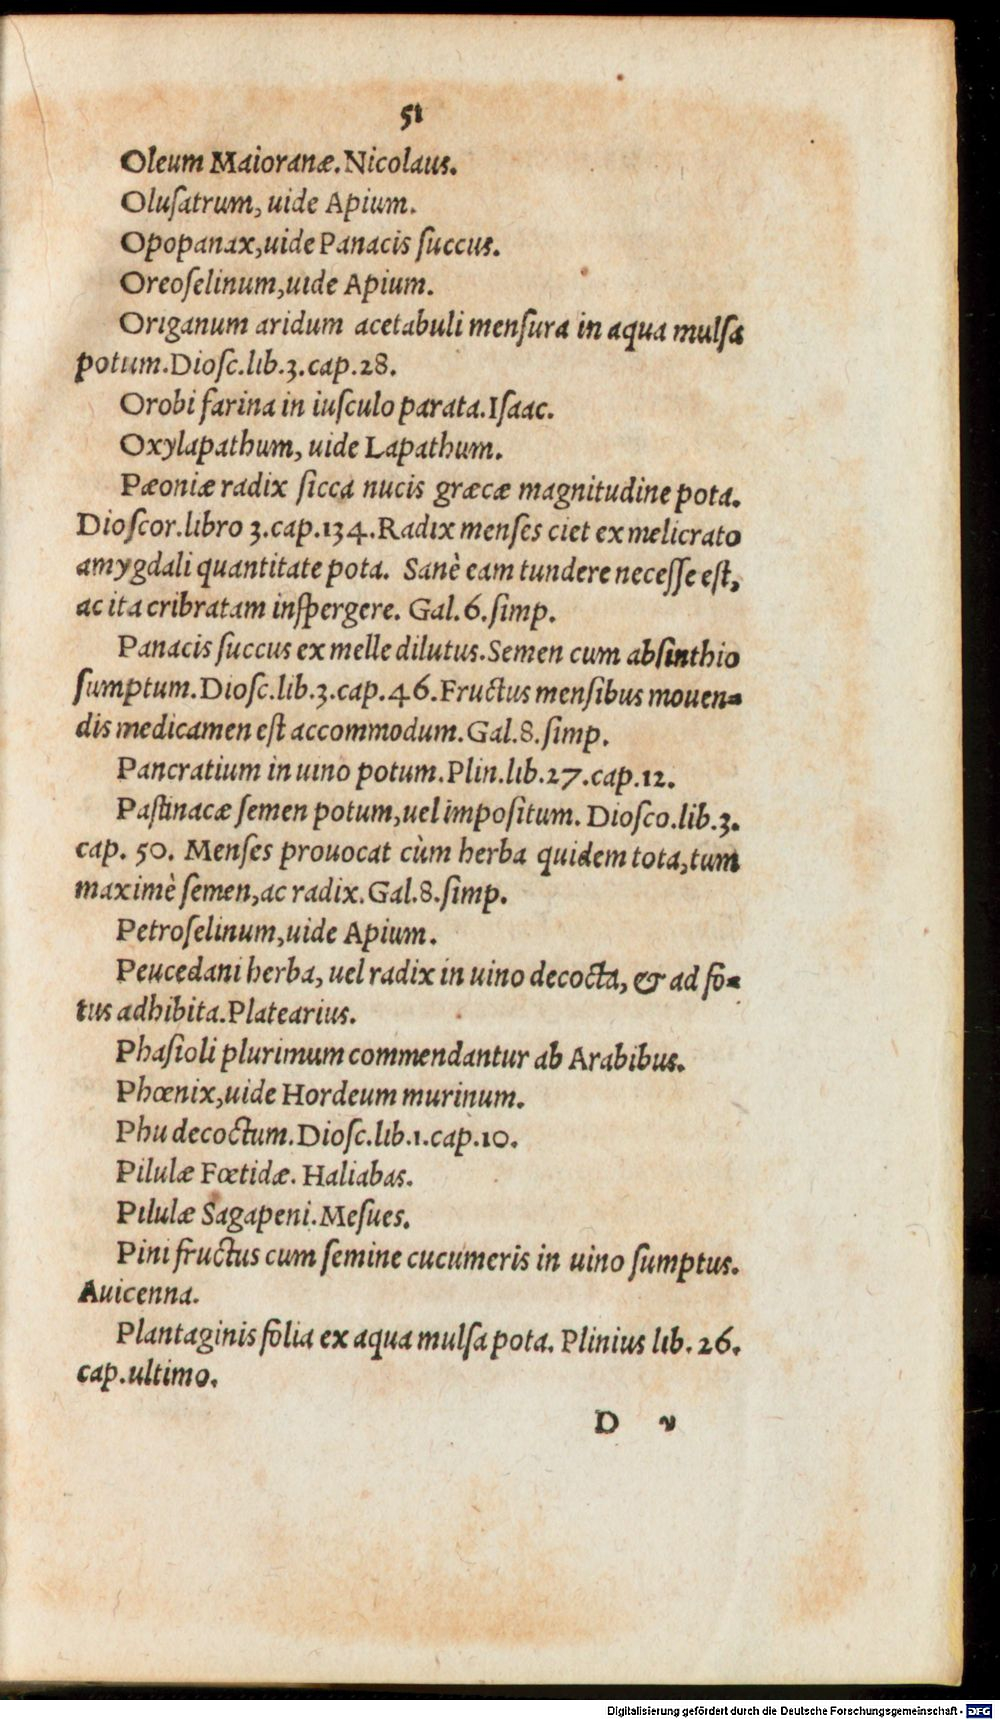 51
Oleum Maioranæ. Nicolaus.
Oluſatrum, uide Apium.
Opopanax, uide Panacis ſuccus.
Oreoſelinum, uide Apium.
Origanum aridum acetabuli menſura in aqua mulſa
potum. Dioſc. lib. 3. cap. 28.
Orobi farina in iuſculo parata. Iſaac.
Oxylapathum, uide Lapathum.
Pæoniæ radix ſicca nucis græcæ magnitudine pota.
Dioſcor. libro 3. cap. 134. Radix menſes ciet ex melicrato
amygdali quantitate pota. Sanè eam tundere neceſſe eſt,
ac ita cribratam inſpergere. Gal. 6. ſimp.
Panacis ſuccus ex melle dilutus. Semen cum abſinthio
ſumptum. Dioſc. lib. 3. cap. 46. Fructus menſibus mouen=
dis medicamen eſt accommodum. Gal. 8. ſimp.
Pancratium in uino potum. Plin. lib. 27. cap. 12.
Paſtinacæ ſemen potum, uel impoſitum. Dioſco. lib. 3.
cap. 50. Menſes prouocat cùm herba quidem tota, tum
maximè ſemen, ac radix. Gal. 8. ſimp.
Petroſelinum, uide Apium.
Peucedani herba, uel radix in uino decocta, & ad fo=
tus adhibita. Platearius.
Phaſioli plurimum commendantur ab Arabibus.
Phœnix, uide Hordeum murinum.
Phu decoctum. Dioſc. lib. 1. cap. 10.
Pilulæ Fœtidæ. Haliabas.
Pilulæ Sagapeni. Meſues.
Pini fructus cum ſemine cucumeris in uino ſumptus.
Auicenna.
Plantaginis folia ex aqua mulſa pota. Plinius lib. 26.
cap. ultimo.
D v
Digitalisierung gefördert durch die Deutsche Forschungsgemeinschaft - DFG